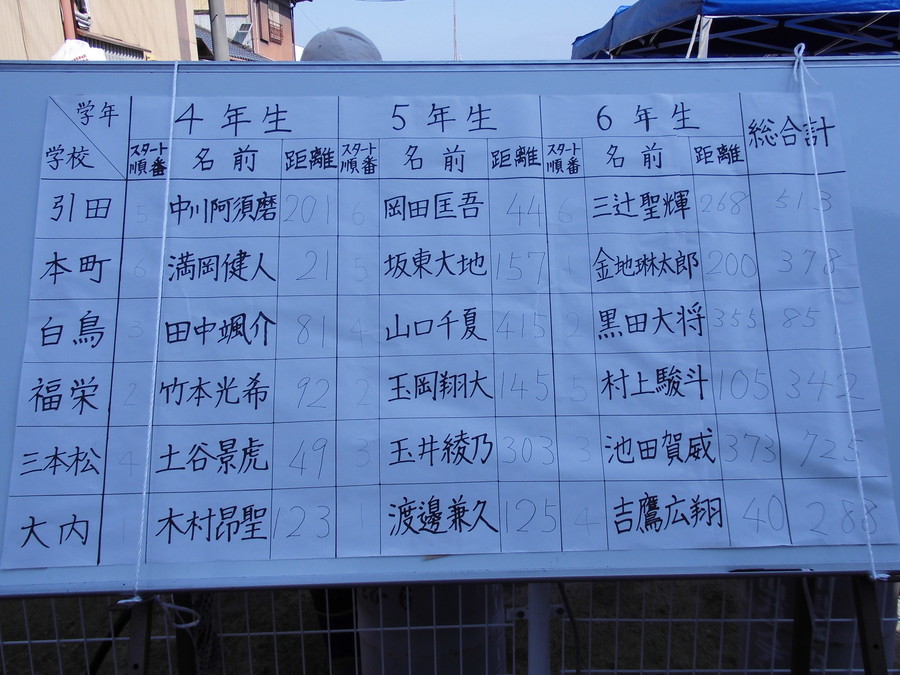 学年 4年生 5年生 6年生 総合計
学校 スタート順番 名前 距離 スタート順番 名前 距離 スタート順番 名前 距離
引田 5 中川阿須磨 201 6 岡田匡吾 44 6 三辻聖輝 268 513
本町 6 満岡健人 21 5 坂東大地 157 1 金地琳太郎 200 378
白鳥 3 田中颯介 81 4 山口千夏 415 2 黒田大将 355 85
福栄 2 竹本光希 92 2 玉岡翔大 145 5 村上駿斗 105 342
三本松 4 土谷景虎 49 3 玉井綾乃 303 3 池田賀威 373 725
大内 1 木村昂聖 123 1 渡邊兼久 125 4 吉鷹広翔 40 288